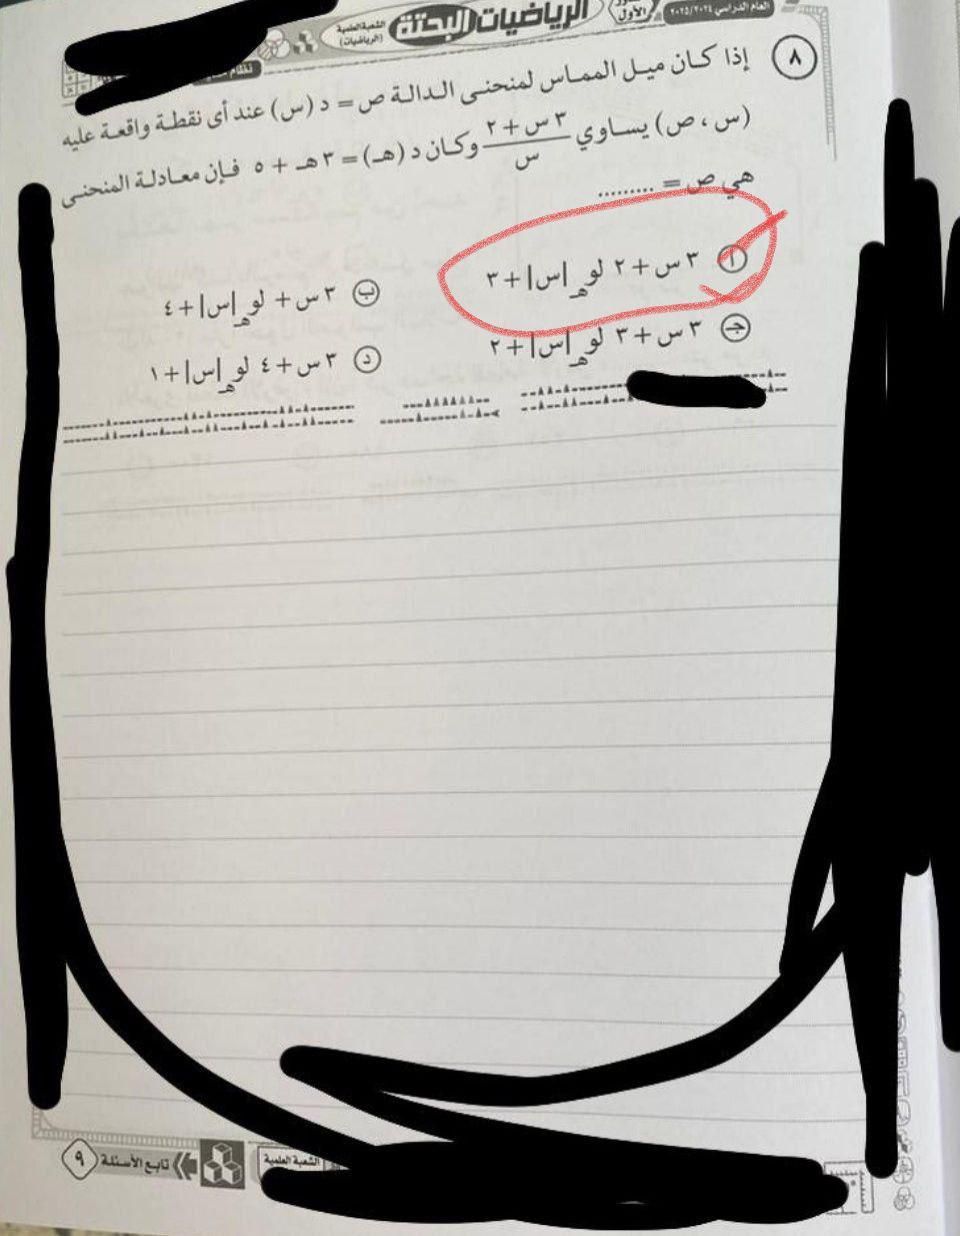 العام الدراسي ٢٠٢٥/٢٠٢٤
الأول
الرياضيات البحتة
الشعبة العلمية
(الرياضيات)
٨ إذا كان ميل المماس لمنحنى الدالة ص = د (س) عند أى نقطة واقعة عليه
(س ، ص) يساوي ٣ س + ٢ / س وكان د (هـ) = ٣ هـ + ٥ فإن معادلة المنحنى
هي ص = .........
أ ٣ س + ٢ لو هـ |س| + ٣
ب ٣ س + لو هـ |س| + ٤
جـ ٣ س + ٣ لو هـ |س| + ٢
د ٣ س + ٤ لو هـ |س| + ١
الشعبة العلمية
تابع الأسئلة
٩